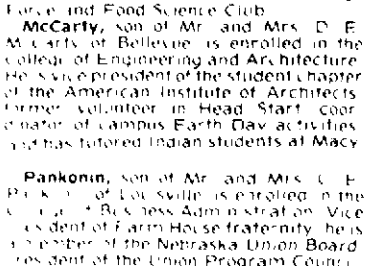 Force and Food Science Club
McCarty, son of Mr. and Mrs. D. E.
McCarty of Bellevue is enrolled in the
College of Engineering and Architecture
He is vice president of the student chapter
of the American Institute of Architects
former volunteer in Head Start coor
dinator of campus Earth Day activities
and has tutored Indian students at Macy
Pankonin, son of Mr. and Mrs.
of Louisville is enrolled in the
of Business Administration Vice
president of Farm House fraternity, he is
a member of the Nebraska Union Board
president of the Union Program Council